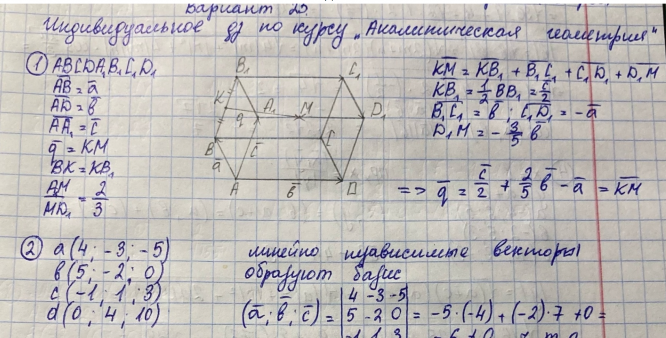 Вариант 20
Индивидуальное дз по курсу „Аналитическая геометрия"
① ABCDA₁B₁C₁D₁
AB = a̅
AD = b̅
AA₁ = c̅
q̅ = KM
BK = KB₁
AM/MD₁ = 2/3
B₁ C₁ K A₁ M D₁ q B C a̅ c̅ A b̅ D
KM = KB₁ + B₁C₁ + C₁D₁ + D₁M
KB₁ = 1/2 BB₁ = c̅/2
B₁C₁ = b̅ ; C₁D₁ = -a̅
D₁M = - 3/5 b̅
=> q̅ = c̅/2 + 2/5 b̅ - a̅ = KM
② a(4; -3; -5)
b(5; -2; 0)
c(-1; 1; 3)
d(0; 4; 10)
линейно независимые векторы
образуют базис
(a̅; b̅; c̅) = |4 -3 -5| = -5·(-4) + (-2)·7 + 0 =
5 -2 0
-1 1 3